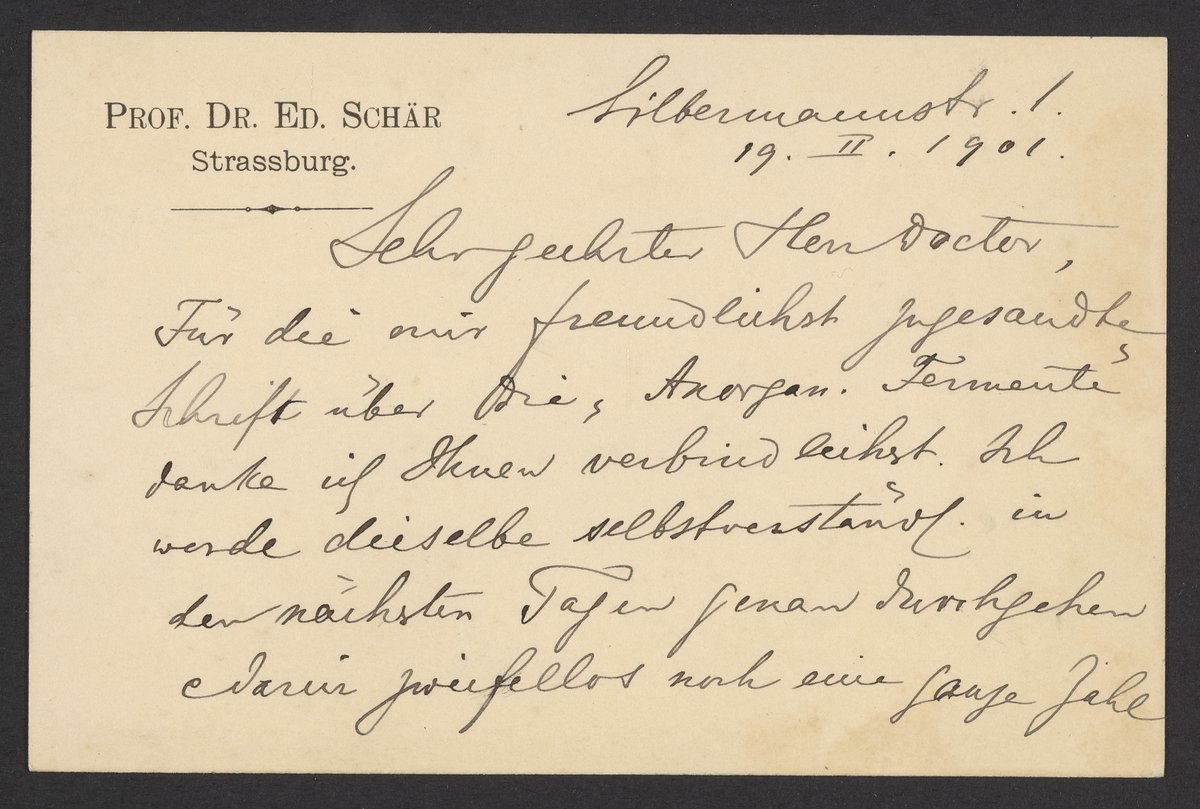 PROF. DR. ED. SCHÄR
Strassburg.
Silbermannstr. 1.
19. II. 1901.
Sehr geehrter Herr Doctor,
Für die mir freundlichst zugesandte
Schrift über die „Anorgan. Fermente“
danke ich Ihnen verbindlichst. Ich
werde dieselbe selbstverständl. in
den nächsten Tagen genau durchgehen
& darin zweifellos noch eine ganze Zahl